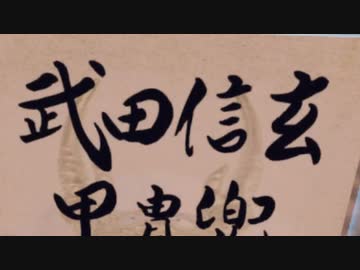 武田信玄
甲冑兜